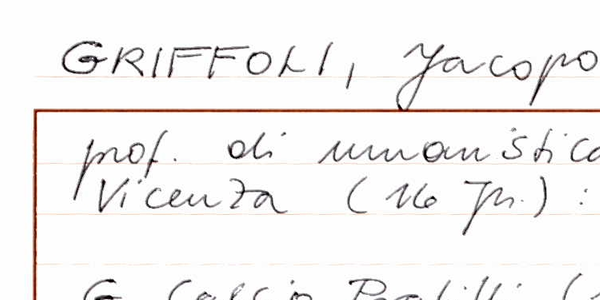 GRIFFOLI, Jacopo
prof. di umanistica
Vicenza (16 Jh.) :
G. Calcio